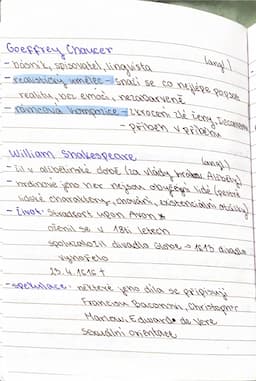 Goeffrey Chaucer (angl.)
- básník, spisovatel, lingvista
- realistický umělec - snaží se co nejlépe popsat
realitu, bez emocí, nezabarveně
- rámcová kompozice - zkrocení zlé ženy, Decameron
- příběh v příběhu
William Shakespeare (angl.)
- žil v alžbětinské době (za vlády královny Alžběty)
- hrdinové jeho her nejsou obyčejní lidé (pestré
lidské charaktery, chování, existenciální otázky)
- život: Stratford upon Avon *
oženil se v 18ti letech
spoluzaložil divadlo Globe → 1613 divadlo
vyhořelo
23.4.1616 †
- spekulace - některé jeho díla se připisují
Francisu Baconovi, Christopher
Marlow, Edward de Vere
sexuální orientace